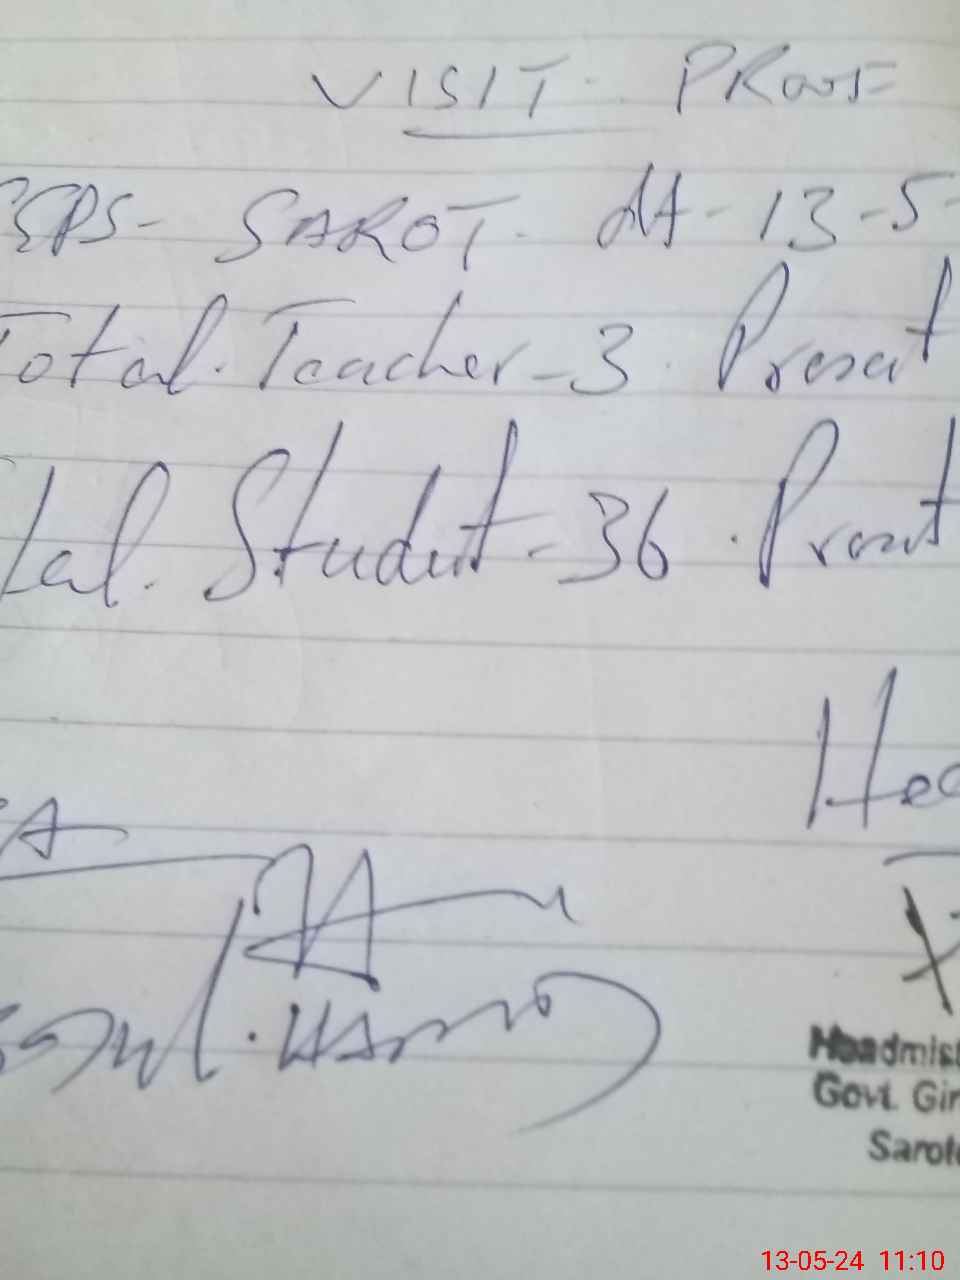 VISIT. PROOF
GGPS- SAROT. dt- 13-5-
Total. Teacher-3. Present
tal. Student-36. Present
Hea
A
Headmist
Govt. Gir
Sarote
13-05-24 11:10